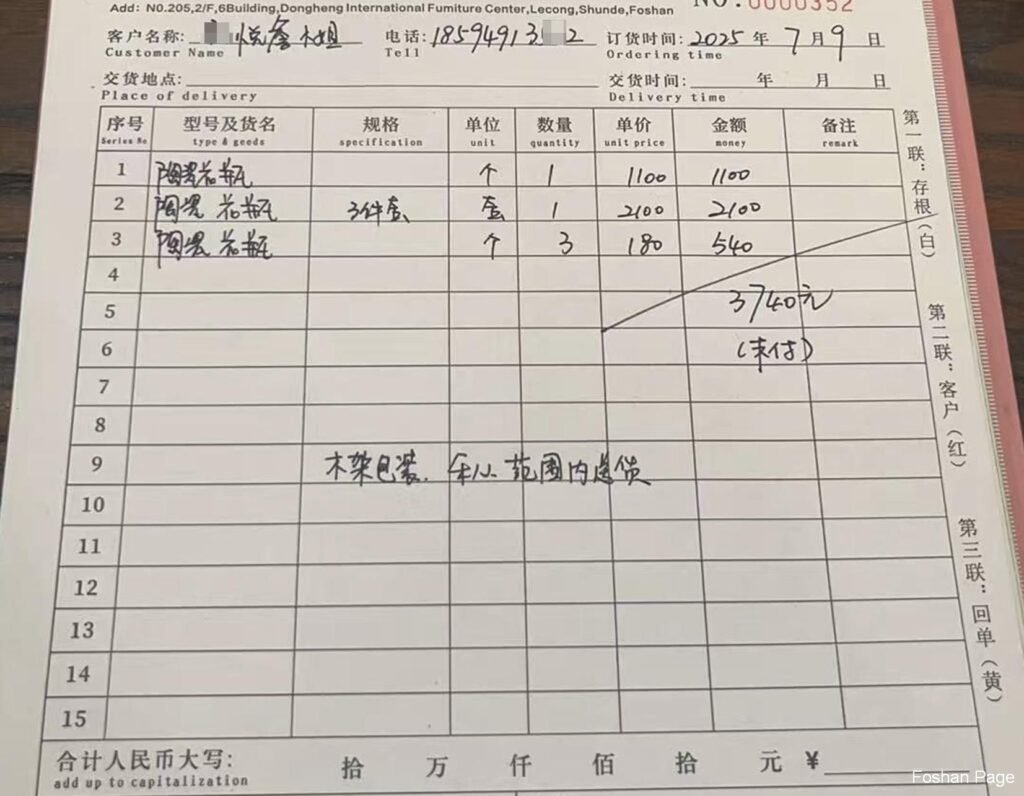 Add: N0.205,2/F,6Building,Dongheng International Fumiture Center,Lecong,Shunde,Foshan
NO.0000352
客户名称: 悦 小姐 电话: 18594913 2 订货时间: 2025 年 7 月 9 日
Customer Name Tell Ordering time
交货地点: 交货时间: 年 月 日
Place of delivery Delivery time
序号 型号及货名 规格 单位 数量 单价 金额 备注
Series No type & goods specification unit quantity unit price money remark
1 陶瓷花瓶 个 1 1100 1100
2 陶瓷花瓶 3件套 套 1 2100 2100
3 陶瓷花瓶 个 3 180 540
4
5 3740元
6 (未付)
7
8
9 木架包装. 乐从范围内送货
10
11
12
13
14
15
合计人民币大写: 拾 万 仟 佰 拾 元 ¥
add up to capitalization
第一联:存根(白)
第二联:客户(红)
第三联:回单(黄)
Foshan Page